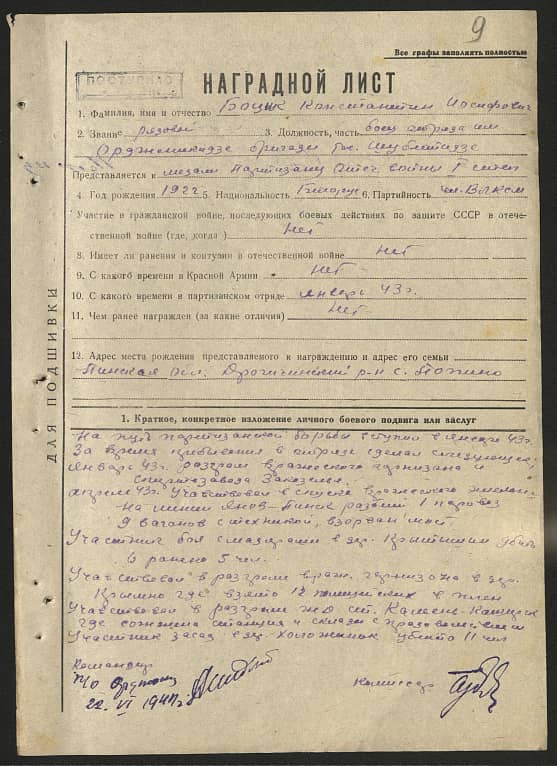 9
Все графы заполнять полностью
ПОСТУПИЛО
НАГРАДНОЙ ЛИСТ
1. Фамилия, имя и отчество Боцык Константин Иосифович
2. Звание рядовой 3. Должность, часть боец отряда им
Орджоникидзе бригады
Представляется к медали Партизану Отеч. войны
4. Год рождения 1922 5. Национальность Белорус 6. Партийность чл. ВЛКСМ
Участие в гражданской войне, последующих боевых действиях по защите СССР в отече-
ственной войне (где, когда) Нет
8. Имеет ли ранения и контузии в отечественной войне Нет
9. С какого времени в Красной Армии Нет
10. С какого времени в партизанском отряде январь 43 г.
11. Чем ранее награжден (за какие отличия) Нет
12. Адрес места рождения представляемого к награждению и адрес его семьи
Пинская обл. Дрогичинский р-н с. Попино
ДЛЯ ПОДШИВКИ
1. Краткое, конкретное изложение личного боевого подвига или заслуг
На путь партизанской борьбы вступил в январе 43 г.
За время пребывания в отряде сделал следующее:
Январь 43 г. разгром вражеского гарнизона и
спиртзавода
апрель 43 г. Участвовал в спуске вражеского эшелона
на линии Янов-Пинск разбит 1 паровоз
9 вагонов с техникой, взорван мост
Участник боя с в др. убито
6 ранено 5 чел.
Участвовал в разгроме враж. гарнизона в др.
где взято 12 в плен
Участвовал в разгроме ж/д ст. Камень-Каширск
где сожжена станция и склады с продовольствием
Участник засад в др. убито 11 чел
Командир
п/о Орджон
22. VI 1944 г
Комиссар